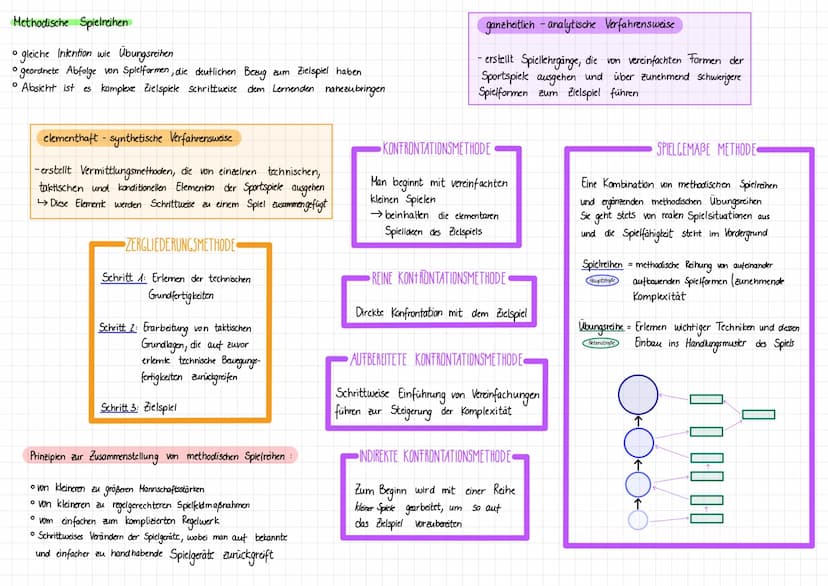 Methodische Spielreihen
° gleiche Intention wie Übungsreihen
° geordnete Abfolge von Spielformen, die deutlichen Bezug zum Zielspiel haben
° Absicht ist es komplexe Zielspiele schrittweise dem Lernenden nahezubringen
ganzheitlich - analytische Verfahrensweise
- erstellt Spiellehrgänge, die von vereinfachten Formen der
Sportspiele ausgehen und über zunehmend schwierigere
Spielformen zum Zielspiel führen
elementhaft - synthetische Verfahrensweise
- erstellt Vermittlungsmethoden, die von einzelnen technischen,
taktischen und konditionellen Elementen der Sportspiele ausgehen
↳ Diese Element werden Schrittweise zu einem Spiel zusammengefügt
ZERGLIEDERUNGSMETHODE
Schritt 1: Erlernen der technischen
Grundfertigkeiten
Schritt 2: Erarbeitung von taktischen
Grundlagen, die auf zuvor
erlernte technische Bewegungs-
fertigkeiten zurückgreifen
Schritt 3: Zielspiel
Prinzipien zur Zusammenstellung von methodischen Spielreihen:
° von kleineren zu größeren Mannschaftsstärken
° von kleineren zu regelgerechteren Spielfeldmaßnahmen
° vom einfachen zum komplizierten Regelwerk
° Schrittweises Verändern der Spielgeräte, wobei man auf bekannte
und einfacher zu handhabende Spielgeräte zurückgreift
KONFRONTATIONSMETHODE
Man beginnt mit vereinfachten
kleinen Spielen
→ beinhalten die elementaren
Spielideen des Zielspiels
REINE KONFRONTATIONSMETHODE
Direkte Konfrontation mit dem Zielspiel
AUFBEREITETE KONFRONTATIONSMETHODE
Schrittweise Einführung von Vereinfachungen
führen zur Steigerung der Komplexität
INDIREKTE KONFRONTATIONSMETHODE
Zum Beginn wird mit einer Reihe
kleiner Spiele gearbeitet, um so auf
das Zielspiel vorzubereiten
SPIELGEMÄßE METHODE
Eine Kombination von methodischen Spielreihen
und ergänzenden methodischen Übungsreihen
Sie geht stets von realen Spielsituationen aus
und die Spielfähigkeit steht im Vordergrund
Spielreihen = methodische Reihung von aufeinander
Hauptstraße aufbauenden Spielformen (zunehmende
Komplexität
Übungsreihe = Erlernen wichtiger Techniken und dessen
Nebenstraße Einbau ins Handlungsmuster des Spiels